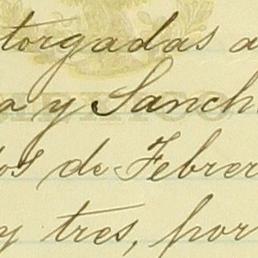 torgadas a
a y Sanch
os de Febrer
y tres, por